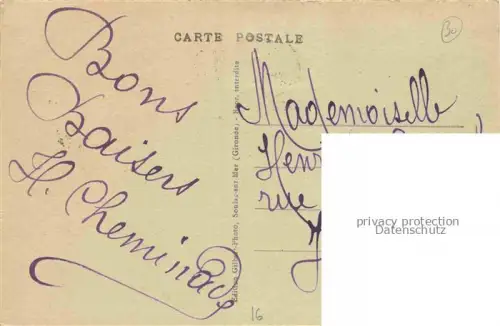 CARTE POSTALE
30
Bons
baisers
H. Cheminade
Edition Gilbert-Photo, Soulac-sur-Mer (Gironde) - Repr. interdite
Mademoiselle
Henr
rue
privacy protection
Datenschutz
16